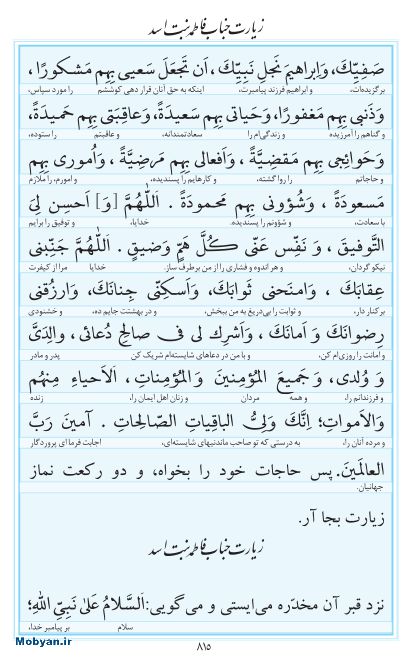 زیارت جناب فاطمه بنت اسد
صَفِیِّكَ، وَاِبراهیمَ نَجلِ نَبِیِّكَ، اَن تَجعَلَ سَعیی بِهِم مَشکورًا،
برگزیده‌ات، و ابراهیم فرزند پیامبرت، اینکه به حق آنان قرار دهی کوششم را مورد سپاس،
وَذَنبی بِهِم مَغفورًا، وَحَیاتی بِهِم سَعیدَةً، وَعاقِبَتی بِهِم حَمیدَةً،
و گناهم را آمرزیده و زندگی‌ام را سعادتمندانه، و عاقبتم را ستوده،
وَحَوائِجی بِهِم مَقضِیَّةً، وَاَفعالی بِهِم مَرضِیَّةً، وَاُموری بِهِم
و حاجاتم را روا گشته، و کارهایم را پسندیده، و امورم، را ملازم
مَسعودَةً، وَشُؤونی بِهِم مَحمودَةً. اَللّٰهُمَّ [وَ] اَحسِن لِیَ
با سعادت، و شؤونم را پسندیده. خدایا، و توفیق را برایم
التَّوفیقَ، وَ نَفِّس عَنّی کُلَّ هَمٍّ وَضیقٍ. اَللّٰهُمَّ جَنِّبنی
نیکو گردان، و هر اندوه و فشاری را از من برطرف ساز. خدایا مرا از کیفرت
عِقابَكَ، وَامنَحنی ثَوابَكَ، وَاَسکِنّی جِنانَكَ، وَارزُقنی
برکنار دار، و ثوابت را بی‌دریغ به من ببخش، و در بهشتت جایم ده، و خشنودی
رِضوانَكَ وَ اَمانَكَ، وَاَشرِك لی فی صالِحِ دُعائی، والِدَیَّ
و امانت را روزی‌ام کن، و با من در دعاهای شایسته‌ام شریک کن پدر و مادر
وَ وُلدی، وَ جَمیعَ المُؤمِنینَ وَالمُؤمِناتِ، اَلاَحیاءِ مِنهُم
و فرزندانم را، و همه مردان و زنان اهل ایمان را، زنده
وَالاَمواتِ؛ اِنَّكَ وَلِیُّ الباقِیاتِ الصّالِحاتِ. آمینَ رَبَّ
و مرده آنان را، به درستی که تو صاحب ماندنیهای شایسته‌ای، اجابت فرما ای پروردگار
العالَمینَ. پس حاجات خود را بخواه، و دو رکعت نماز
جهانیان.
زیارت بجا آر.
زیارت جناب فاطمه بنت اسد
نزد قبر آن مخدّره می‌ایستی و می‌گویی: اَلسَّلامُ عَلیٰ نَبِیِّ اللهِ؛
سلام بر پیامبر خدا،
۸۱۵
Mobyan.ir